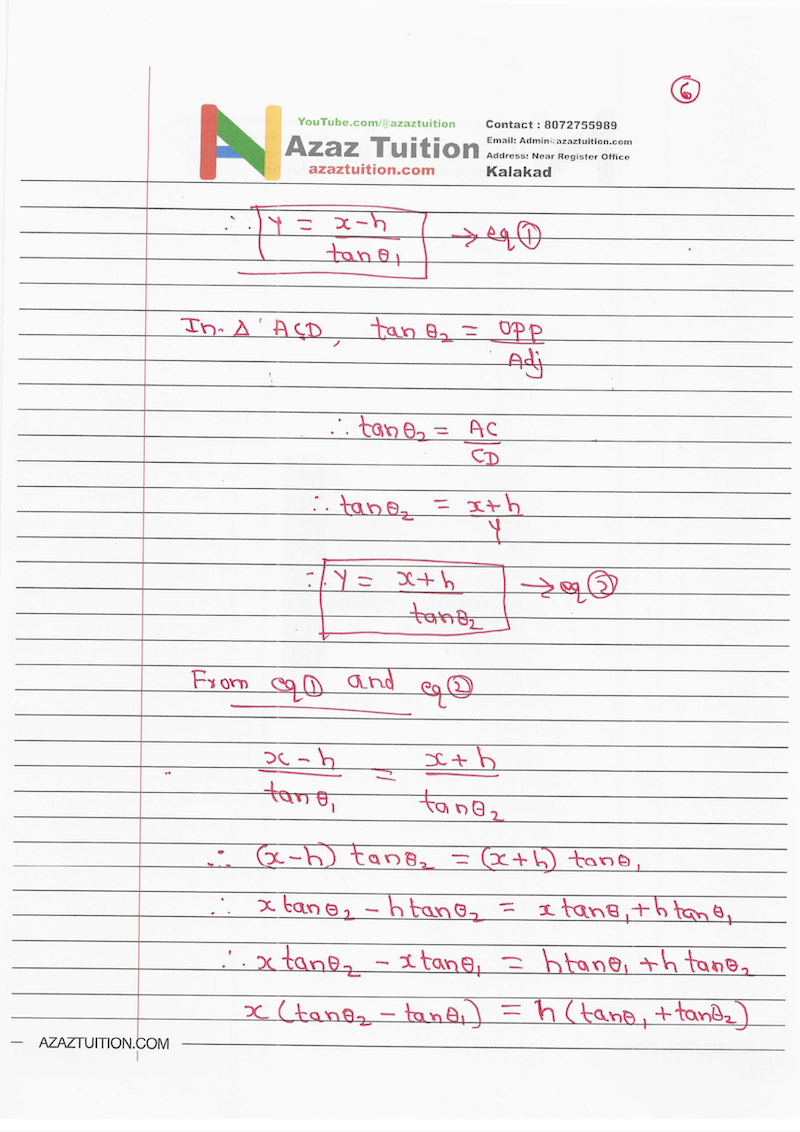 6
YouTube.com/@azaztuition
Azaz Tuition
azaztuition.com
Contact : 8072755989
Email: Admin@azaztuition.com
Address: Near Register Office
Kalakad
∴ y = x-h / tanθ₁ → eq ①
In Δ ACD, tan θ₂ = opp / Adj
∴ tanθ₂ = AC / CD
∴ tanθ₂ = x+h / y
∴ y = x+h / tanθ₂ → eq ②
From eq ① and eq ②
x-h / tanθ₁ = x+h / tanθ₂
∴ (x-h) tanθ₂ = (x+h) tanθ₁
∴ x tanθ₂ - h tanθ₂ = x tanθ₁ + h tanθ₁
∴ x tanθ₂ - x tanθ₁ = h tanθ₁ + h tanθ₂
x (tanθ₂ - tanθ₁) = h (tanθ₁ + tanθ₂)
AZAZTUITION.COM